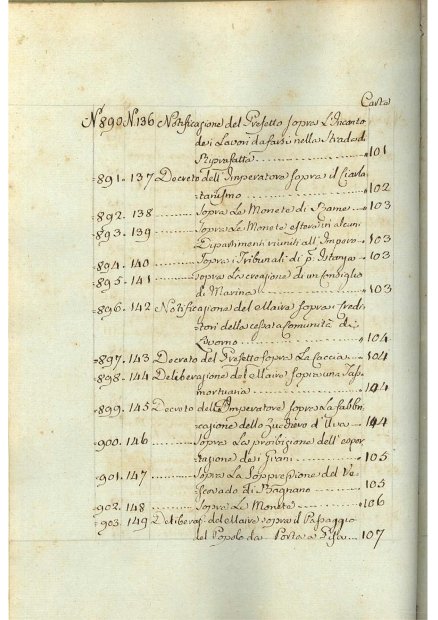 Carta
N° 890 N. 136 Notificazione del Prefetto sopra L'Incanto
dei Lavori da farsi nella Strada di
Ripafratta 101
891. 137 Decreto dell'Imperatore sopra il Ciarla
tanismo 102
892. 138 Sopra Le Monete di Rame 103
893. 139 Sopra Le Monete estere in alcuni
Dipartimenti riuniti all'Impero 103
894. 140 Sopra i Tribunali di p.a Istanza 103
895. 141 Sopra La creazione di un Consiglio
di Marina 103
896. 142 Notificazione del Maire sopra i Credi
tori della cessata Comunità di
Livorno 104
897. 143 Decreto del Prefetto sopra La Caccia 104
898. 144 Deliberazione del Maire sopra una Tassa
mortuaria 104
899. 145 Decreto dell'Imperatore sopra La fabbri
cazione dello Zucchero d'Uva 104
900. 146 Sopra La proibizione dell'espor
tazione dei Grani 105
901. 147 Sopra La Soppressione del Ve
scovado di 105
902. 148 Sopra Le Monete 106
903. 149 Deliberaz. del Maire sopra il Passaggio
del Popolo da Porta a Pisa 107